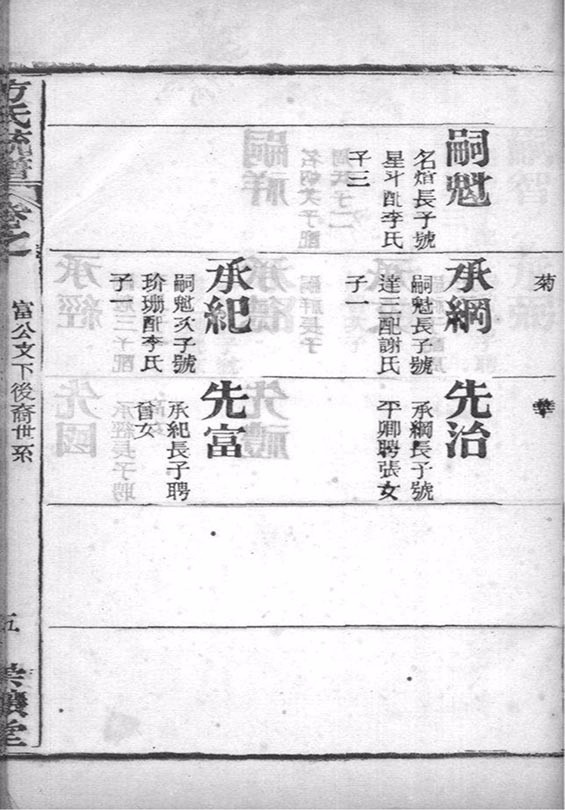 菊
嗣魁
名煊長子號
星斗配李氏
子三
承綱
嗣魁長子號
達三配謝氏
子一
承紀
嗣魁次子號
玠珊配李氏
子一
先治
承綱長子號
平卿聘張女
先富
承紀長子聘
女
方氏
卷之一
富公文下後裔世系
五
堂